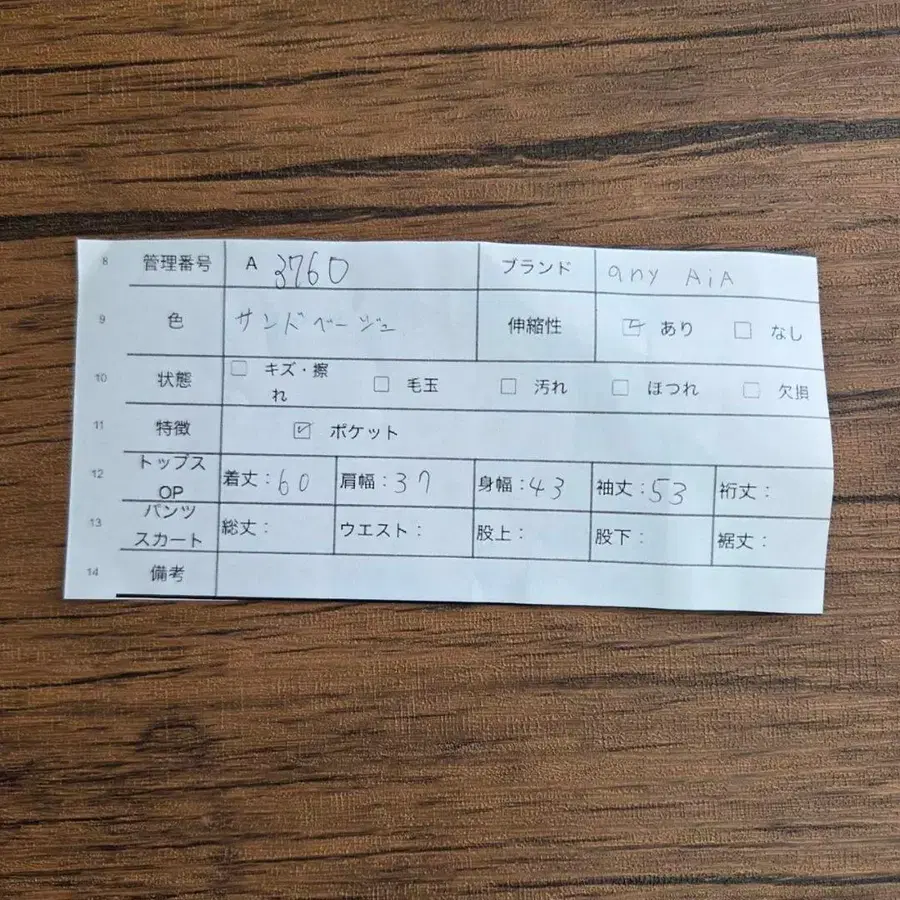 8 管理番号 A 3760 ブランド any AiA
9 色 サンドベージュ 伸縮性 ☑ あり ☐ なし
10 状態 ☐ キズ・擦れ ☐ 毛玉 ☐ 汚れ ☐ ほつれ ☐ 欠損
11 特徴 ☑ ポケット
12 トップス OP 着丈：60 肩幅：37 身幅：43 袖丈：53 裄丈：
13 パンツ スカート 総丈： ウエスト： 股上： 股下： 裾丈：
14 備考